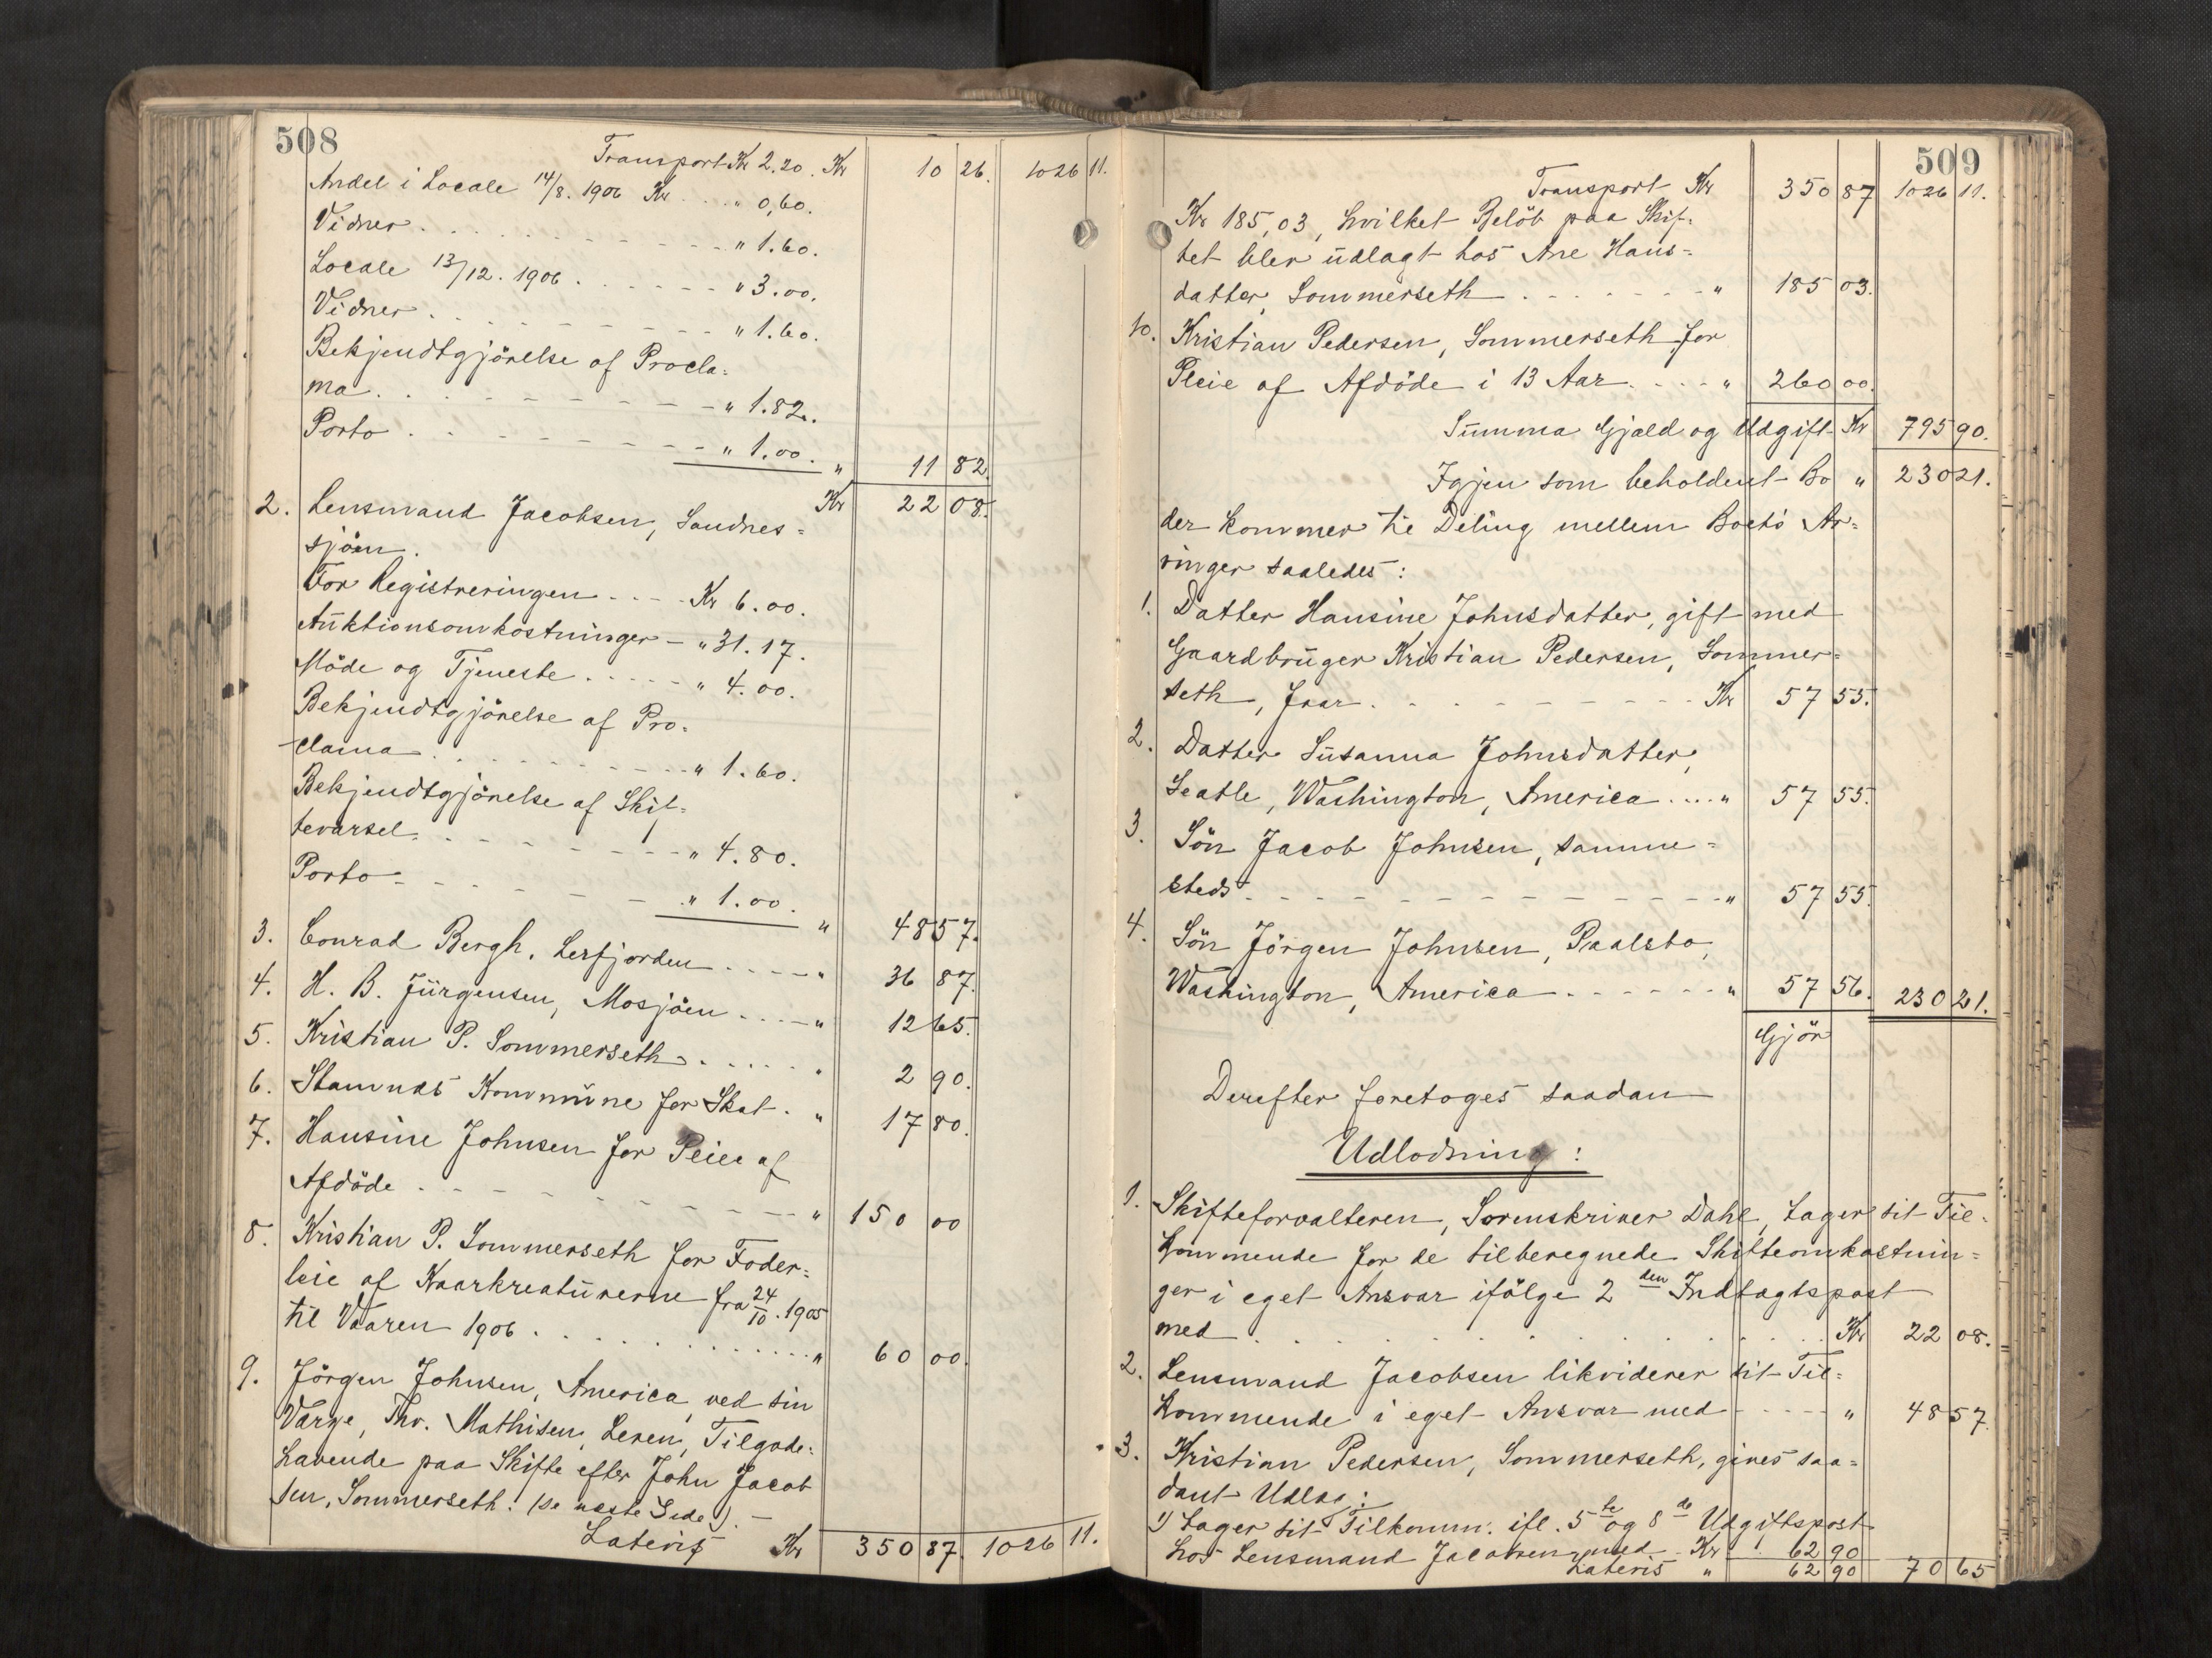 508
Transport Kr 2.20. Kr 10 26. 1026 11.
Andel i Locale 14/8. 1906 Kr . . . " 0,60.
Vidner . . . . . . . . . . " 1.60.
Locale 13/12. 1906 . . . . . . " 3.00.
Vidner . . . . . . . . . " 1.60.
Bekjendtgjörelse af Procla=
ma . . . . . . . . . . " 1.82.
Porto . . . . . . . . . " 1.00. " 11 82.
Kr 22 08.
2. Lensmand Jacobsen, Sandnes=
sjöen.
For Registreringen . . . . Kr 6.00.
Auktionsomkostninger — " 31.17.
Möde og Tjeneste . . . . . " 4.00.
Bekjendtgjörelse af Pro=
clama . . . . . . . . . . " 1.60.
Bekjendtgjörelse af Skif=
tevarsel . . . . . . . . . " 4.80.
Porto . . . . . . . " 1.00. " 48 57.
3. Conrad Bergh, Lerfjorden . . . . " 36 87.
4. H. B. Jürgensen, Mosjöen . . . . " 12 65.
5. Kristian P. Sommerseth . . . . . " 2 90.
6. Stamnes Kommune for Skat . " 17 80.
7. Hansine Johnsen for Pleie af
Afdöde . . . . . . . . . . . " 150 00
8. Kristian P. Sommerseth for Foder=
leie af Kaarkreaturerne fra 24/10. 1905
til Vaaren 1906 . . . . . . . . . . " 60 00.
9. Jörgen Johnsen, America, ved sin
Værge, Thv. Mathisen, Leren, Tilgode=
havende paa Skifte efter John Jacob
sen, Sommerseth. (Se næste Side). —
Lateris Kr 350 87. 1026 11.
509
Transport Kr 350 87 1026 11.
Kr 185,03, hvilket Belöb paa Skif=
tet blev udlagt hos Ane Hans=
datter, Sommerseth . . . . . . . . " 185 03.
10. Kristian Pedersen, Sommerseth for
Pleie af Afdöde i 13 Aar . . . . " 260 00.
Summa Gjæld og Udgift Kr 795 90.
Igjen som beholdent Bo " 230 21.
der kommer til Deling mellem Boets Ar=
vinger saaledes:
1. Datter Hansine Johnsdatter, gift med
Gaardbruger Kristian Pedersen, Sommer=
seth, faar . . . . . . . . . . Kr 57 55.
2. Datter Susanna Johnsdatter,
Seatle, Washington, America . . . . " 57 55.
3. Sön Jacob Johnsen, samme=
steds . . . . . . . . . . . . . " 57 55.
4. Sön Jörgen Johnsen, Paalsbo,
Washington, America . . . . . . " 57 56. 230 21.
Gjör
Derefter foretoges saadan
Udlodning:
1. Skifteforvalteren, Sorenskriver Dahl, tager sit Til=
kommende for de tilberegnede Skifteomkostnin=
ger i eget Ansvar ifölge 2den Indtægtspost
med . . . . . . . . . . . . . Kr 22 08.
2. Lensmand Jacobsen likviderer sit Til=
kommende i eget Ansvar med . . . . " 48 57.
3. Kristian Pedersen, Sommerseth, gives saa=
dant Udlæg:
1) tager sit Tilkomm. ifl. 5te og 8de Udgiftspost
hos Lensmand Jacobsen med Kr 62 90
Lateris " 62 90 70 65